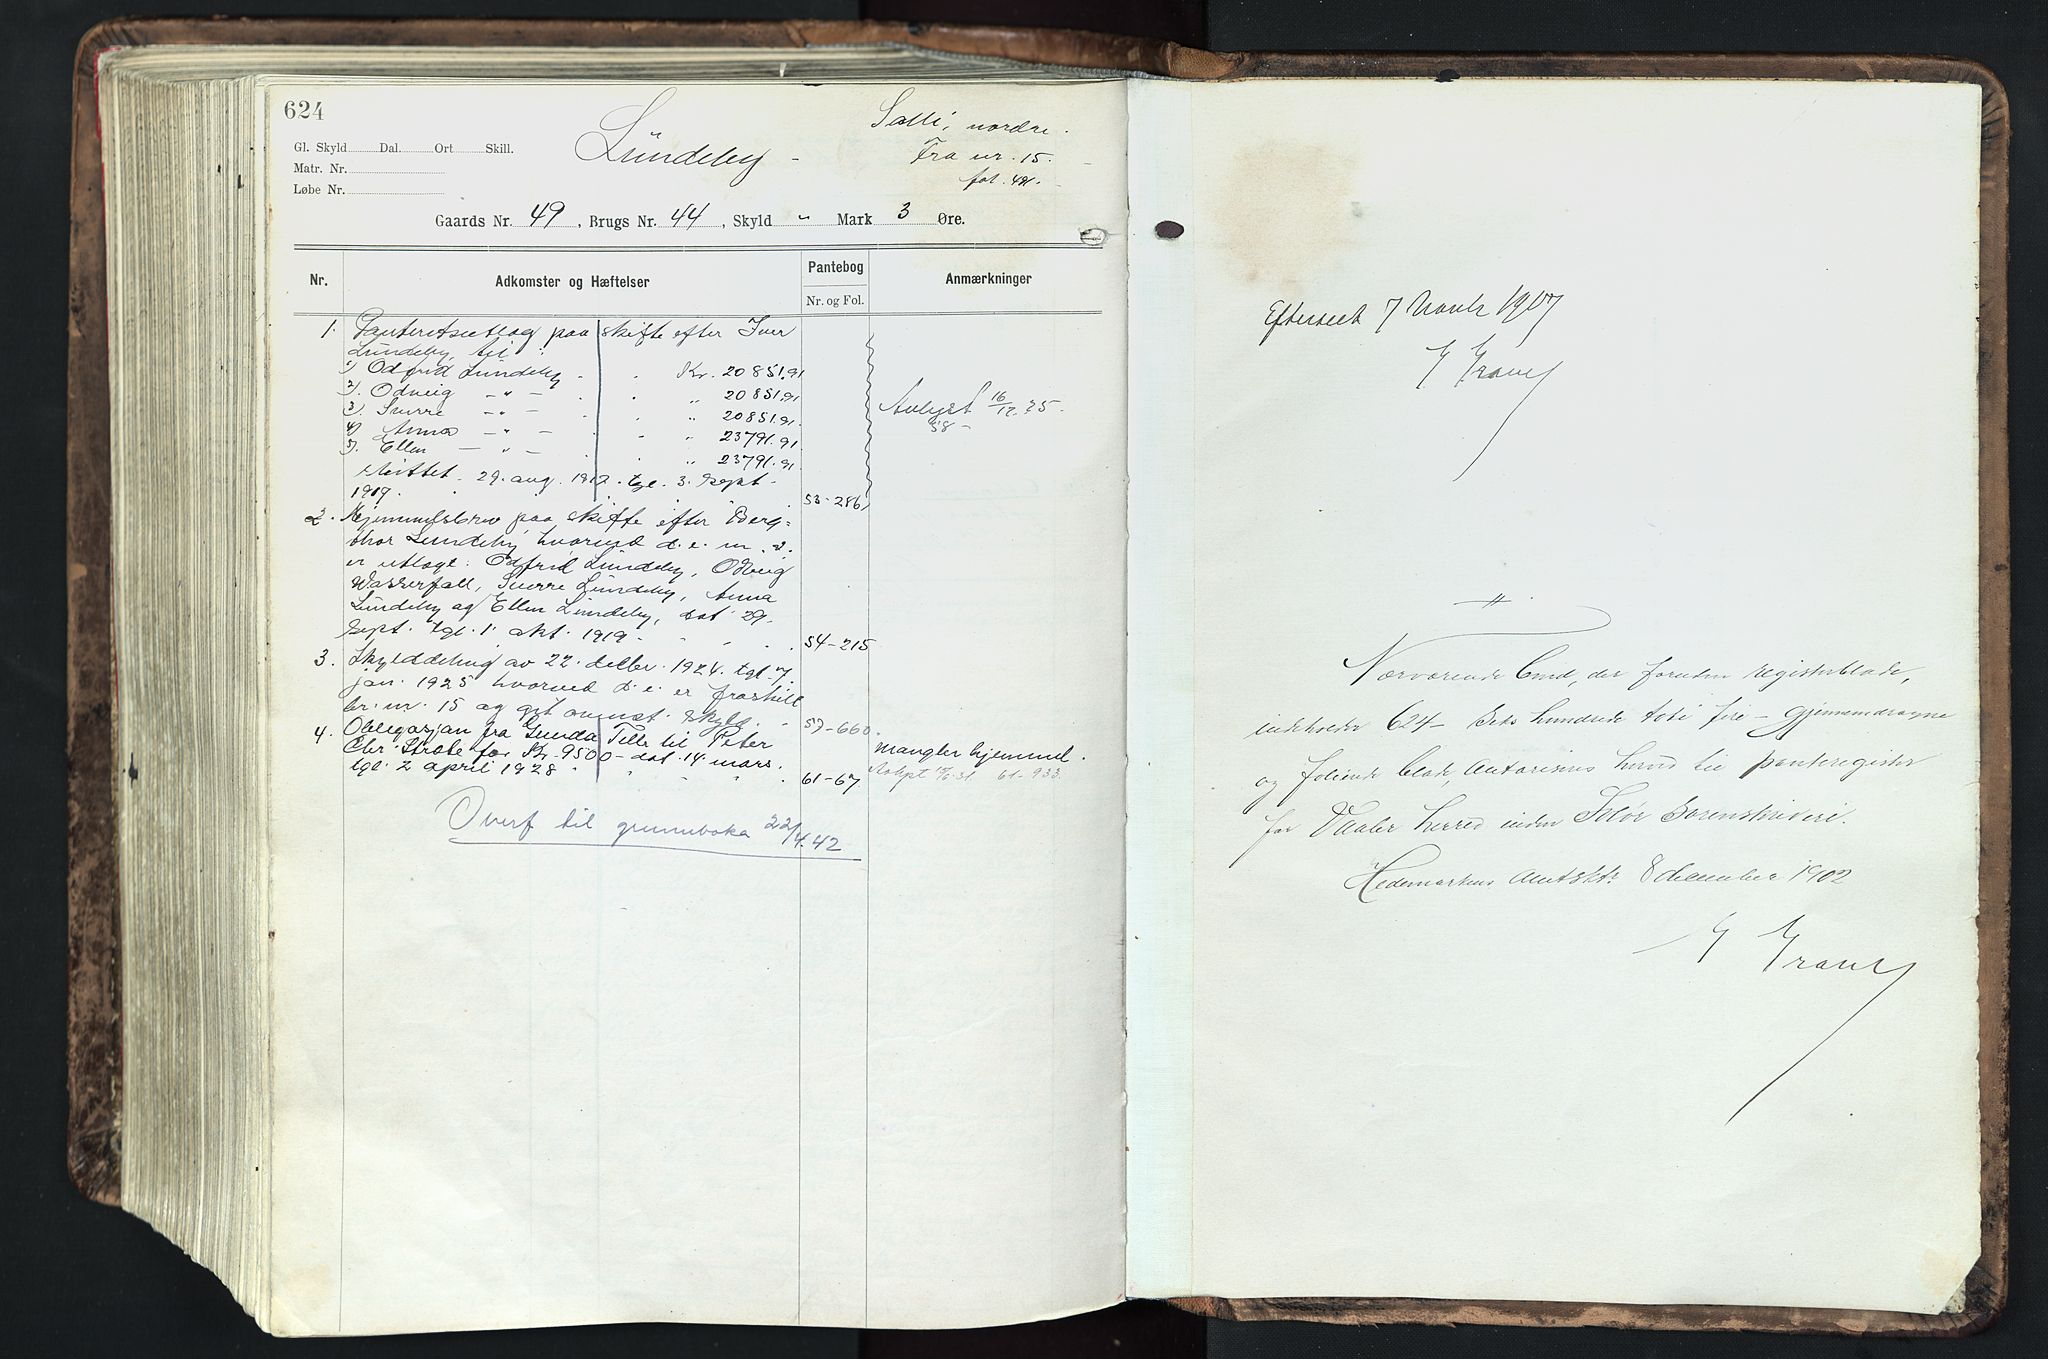 624
Gl. Skyld Dal. Ort Skill.
Matr. Nr.
Løbe Nr.
Lündeby -
Salli, nordre.
Fra nr. 15.
fol. 491.
Gaards Nr. 49, Brugs Nr. 44, Skyld " Mark 3 Øre.
Nr. Adkomster og Hæftelser Pantebog Anmærkninger
Nr. og Fol.
1. Panteretsutlæg paa skifte efter Iver
Lündeby til:
1) Odfrid Lündeby Kr. 20851.91
2) Odveig - " - " 20851.91
3) Sverre - " - " 20851.91
4) Anna - " - " 23791.91
5) Ellen - " - " 23791.91
sluttet 29. aug. 1919. tgl. 3. sept.
1919. 53-286
Avlyst 16/12.35.
58 -
2. Hjemmelsbrev paa skifte efter Berg-
thor Lundeby hvorved d. e. m. v.
er utlagt: Odfrid Lündeby, Odveig
Wasserfall, Sverre Lündeby, Anna
Lündeby og Ellen Lündeby, dat 29.
sept. tgl. 1. okt. 1919. 54-215
3. Skylddeling av 22. deller. 1924. tgl. 7.
jan. 1925 hvorved d. e. er fraskilt
br. nr. 15 og git anmst. skyld. 57-660.
4. Obligasjon fra Gunda Tille til Peter
Chr. Strøbe for Kr. 9500 - dat. 14. mars.
tgl. 2 april 1928 61-67
mangler hjemmel.
61-933.
Overf til grunnboka 22/4.42
Efterseet 7 Novbr 1907
Nærværende Bind, der foruden registerblade,
indeholder 624 - sex hundrede toti fire - gjennemdragne
og folierede blade, autoriseres herved til panteregister
for Vaaler herred under Solør Sorenskriveri.
Hedemarkens Amtskt. 8 december 1902